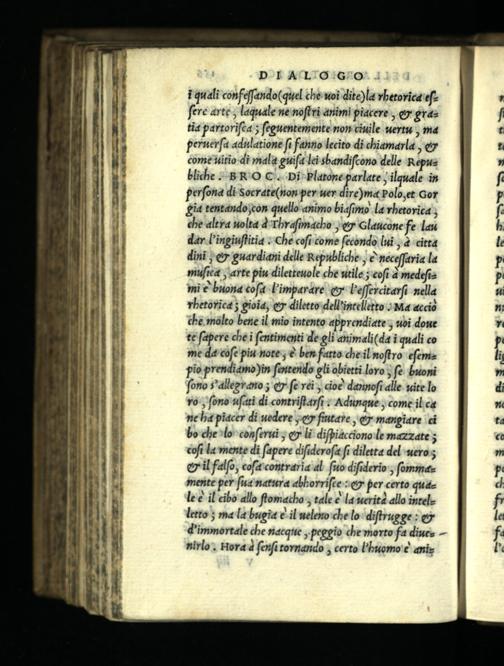 DIALOGO
i quali confessando(quel che voi dite)la rhetorica es-
sere arte, laquale ne nostri animi piacere, & gra-
tia partorisca; seguentemente non ciuile vertu, ma
peruersa adulatione si fanno lecito di chiamarla, &
come uitio di mala guisa lei sbandiscono delle Repu-
bliche. BROC. Di Platone parlate, ilquale in
persona di Socrate(non per uer dire)ma Polo,et Gor
gia tentando,con quello animo biasimò la rhetorica,
che altra uolta à Thrasimacho, & Glaucone fe lau
dar l'ingiustitia. Che cosi come secondo lui, à citta
dini, & guardiani delle Republiche, è necessaria la
musica, arte piu diletteuole che utile; cosi à medesi-
mi è buona cosa l'imparare & l'essercitarsi nella
rhetorica; gioia, & diletto dell'intelletto. Ma acciò
che molto bene il mio intento apprendiate, uoi doue
te sapere che i sentimenti de gli animali(da i quali co
me da cose piu note, è ben fatto che il nostro esem-
pio prendiamo)in sentendo gli obietti loro, se buoni
sono s'allegrano; & se rei, cioè dannosi alle uite lo
ro, sono usati di contristarsi. Adunque, come il ca
ne ha piacer di uedere, & fiutare, & mangiare ci
bo che lo conserui, & li dispiacciono le mazzate;
cosi la mente di sapere disiderosa si diletta del uero;
& il falso, cosa contraria al suo disiderio, somma-
mente per sua natura abhorrisce: & per certo qua-
le è il cibo allo stomacho, tale è la uerità allo intel-
letto; ma la bugia è il ueleno che lo distrugge: &
d'immortale che nacque, peggio che morto fa diue-
nirlo. Hora à sensi tornando, certo l'huomo è ani-